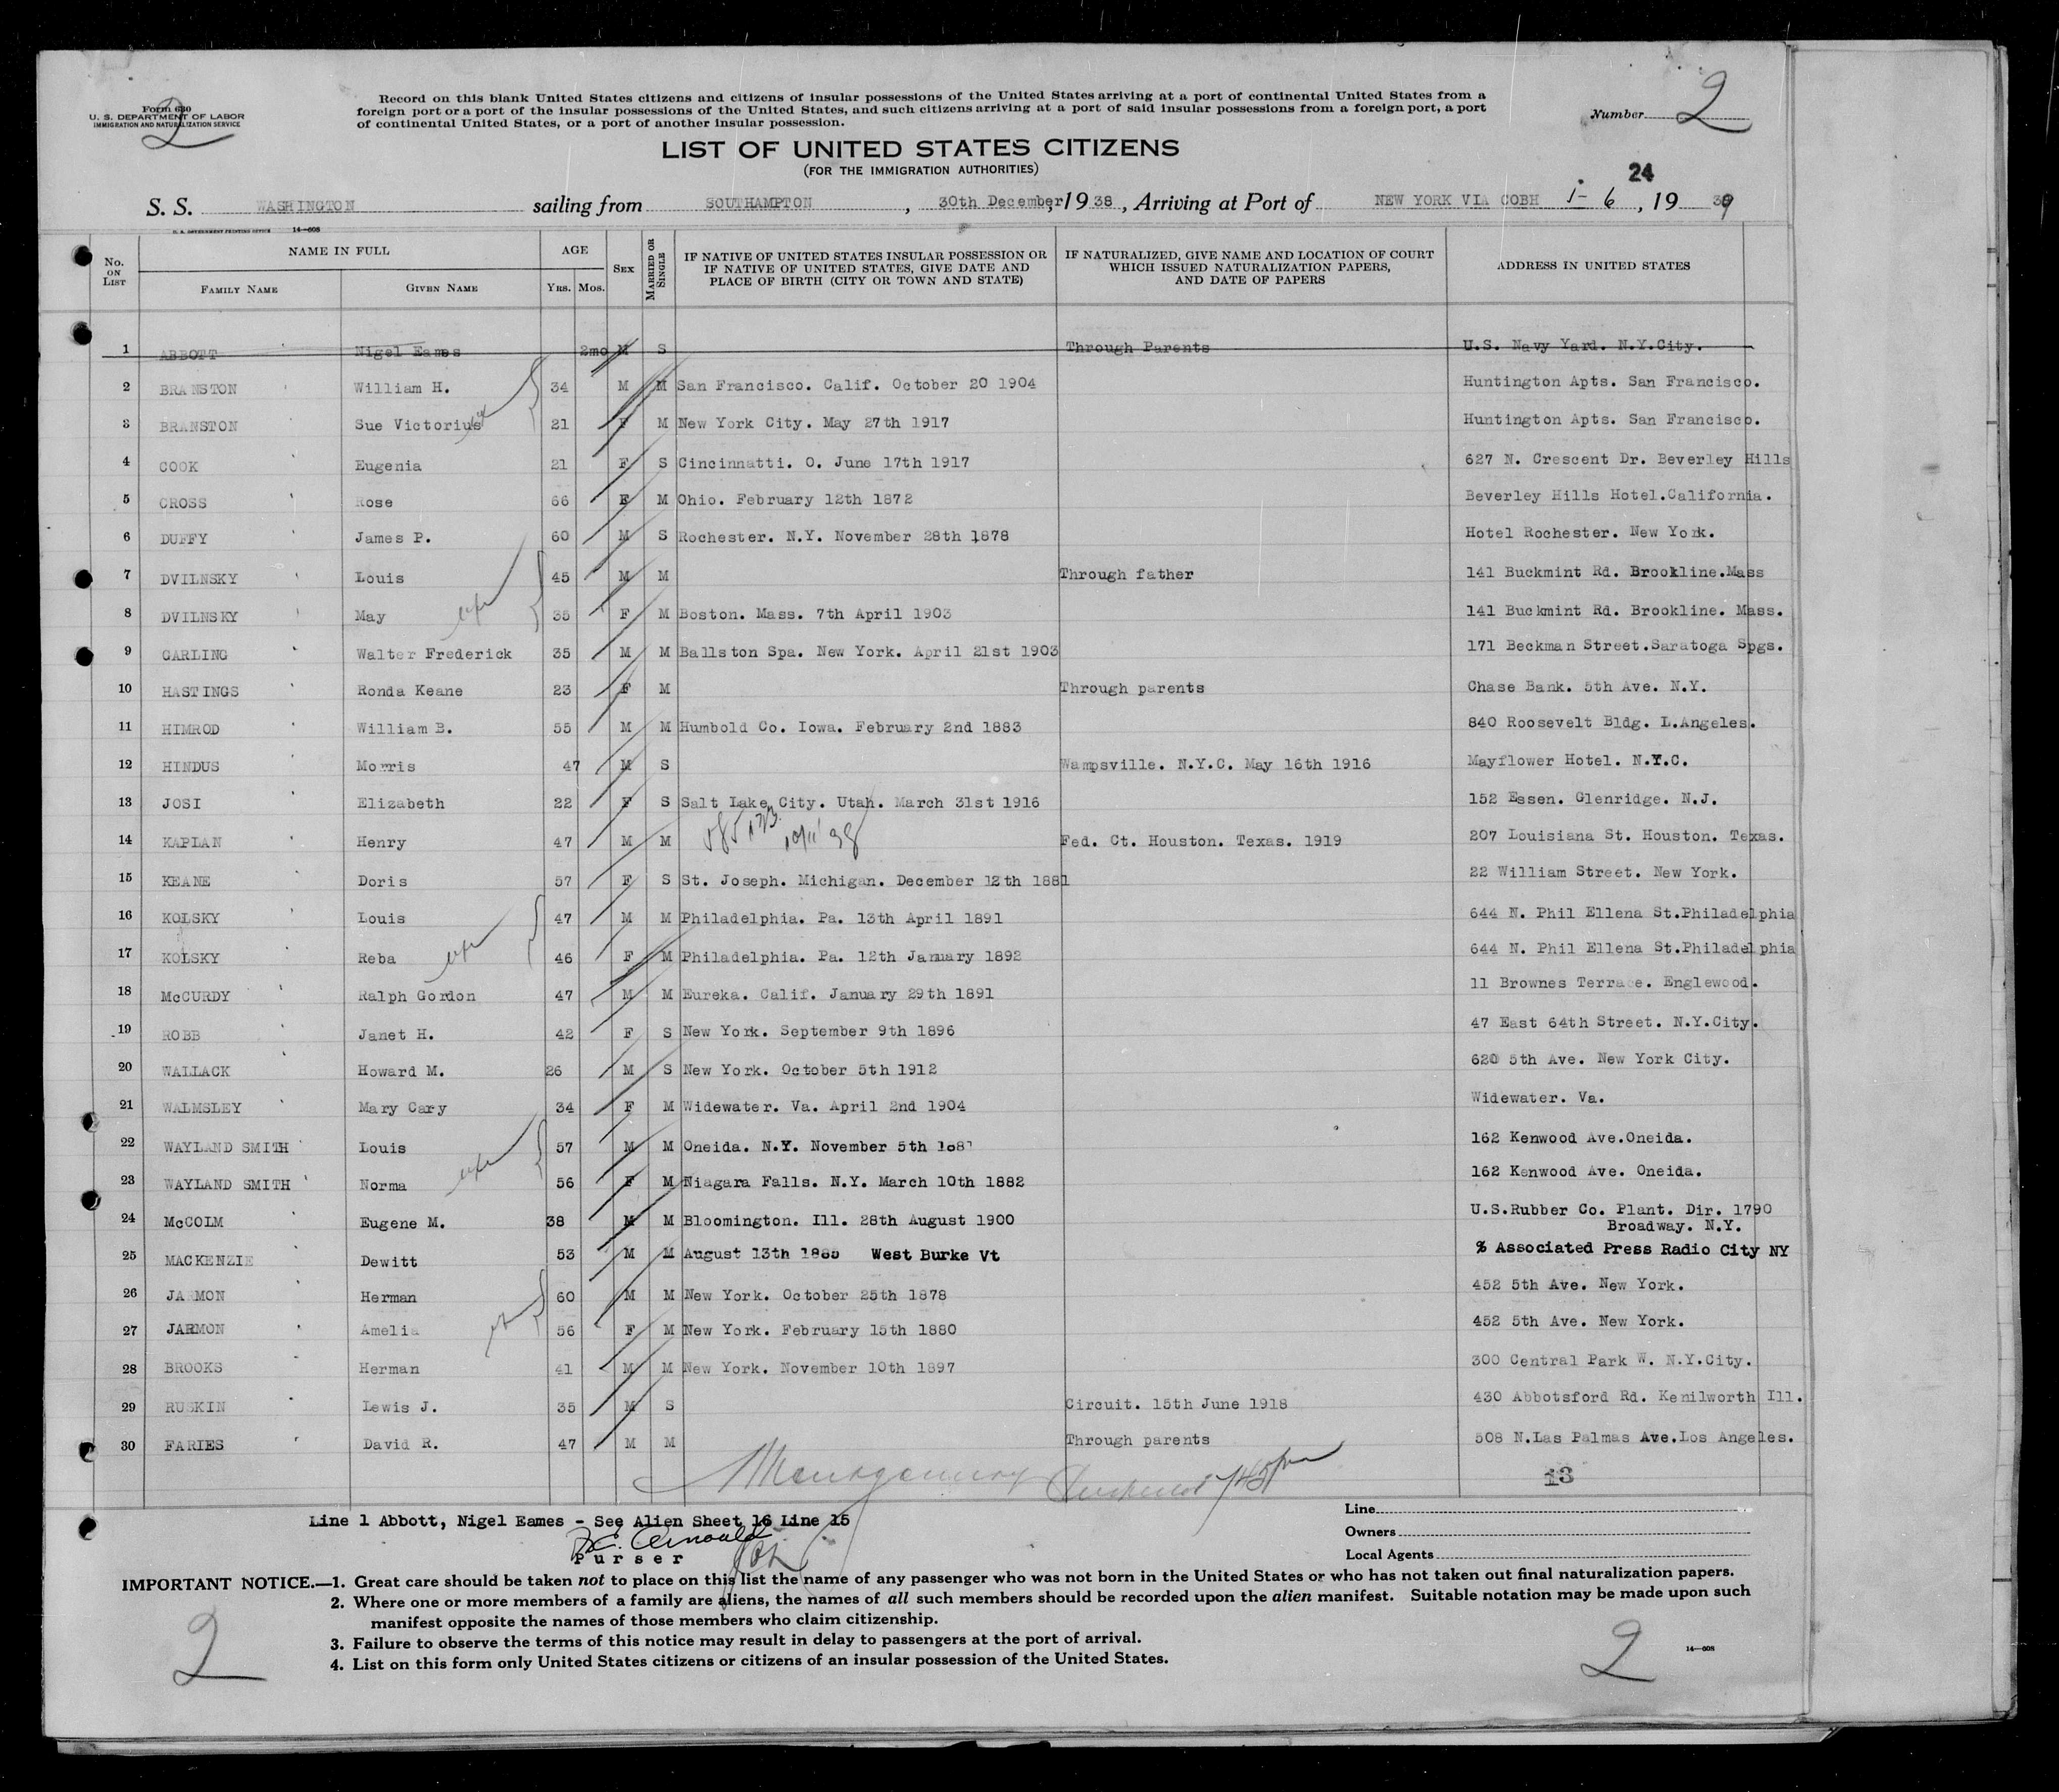 Form 630
U. S. DEPARTMENT OF LABOR
IMMIGRATION AND NATURALIZATION SERVICE
2
Record on this blank United States citizens and citizens of insular possessions of the United States arriving at a port of continental United States from a
foreign port or a port of the insular possessions of the United States, and such citizens arriving at a port of said insular possessions from a foreign port, a port
of continental United States, or a port of another insular possession.
Number 2
LIST OF UNITED STATES CITIZENS
(FOR THE IMMIGRATION AUTHORITIES)
24
S. S. WASHINGTON sailing from SOUTHAMPTON, 30th December, 1938, Arriving at Port of NEW YORK VIA COBH 1-6, 1939
U. S. GOVERNMENT PRINTING OFFICE 14—608
No. ON LIST NAME IN FULL AGE SEX MARRIED OR SINGLE IF NATIVE OF UNITED STATES INSULAR POSSESSION OR IF NATIVE OF UNITED STATES, GIVE DATE AND PLACE OF BIRTH (CITY OR TOWN AND STATE) IF NATURALIZED, GIVE NAME AND LOCATION OF COURT WHICH ISSUED NATURALIZATION PAPERS, AND DATE OF PAPERS ADDRESS IN UNITED STATES
FAMILY NAME GIVEN NAME YRS. MOS.
1 ABBOTT Nigel Eames 2mo M S Through Parents U.S. Navy Yard. N.Y.City.
2 BRANSTON William H. 34 M M San Francisco. Calif. October 20 1904 Huntington Apts. San Francisco.
3 BRANSTON Sue Victorius 21 F M New York City. May 27th 1917 Huntington Apts. San Francisco.
4 COOK Eugenia 21 F S Cincinnatti. O. June 17th 1917 627 N. Crescent Dr. Beverley Hills
5 CROSS Rose 66 F M Ohio. February 12th 1872 Beverley Hills Hotel.California.
6 DUFFY James P. 60 M S Rochester. N.Y. November 28th 1878 Hotel Rochester. New York.
7 DVILNSKY Louis 45 M M Through father 141 Buckmint Rd. Brookline.Mass
8 DVILNSKY May 35 F M Boston. Mass. 7th April 1903 141 Buckmint Rd. Brookline. Mass.
9 GARLING Walter Frederick 35 M M Ballston Spa. New York. April 21st 1903 171 Beckman Street.Saratoga Spgs.
10 HASTINGS Ronda Keane 23 F M Through parents Chase Bank. 5th Ave. N.Y.
11 HIMROD William B. 55 M M Humbold Co. Iowa. February 2nd 1883 840 Roosevelt Bldg. L.Angeles.
12 HINDUS Morris 47 M S Wampsville. N.Y.C. May 16th 1916 Mayflower Hotel. N.Y.C.
13 JOSI Elizabeth 22 F S Salt Lake City. Utah. March 31st 1916 152 Essen. Glenridge. N.J.
14 KAPLAN Henry 47 M M Fed. Ct. Houston. Texas. 1919 207 Louisiana St. Houston. Texas.
15 KEANE Doris 57 F S St. Joseph. Michigan. December 12th 1881 22 William Street. New York.
16 KOLSKY Louis 47 M M Philadelphia. Pa. 13th April 1891 644 N. Phil Ellena St.Philadelphia
17 KOLSKY Reba 46 F M Philadelphia. Pa. 12th January 1892 644 N. Phil Ellena St.Philadelphia
18 McCURDY Ralph Gordon 47 M M Eureka. Calif. January 29th 1891 11 Brownes Terrace. Englewood.
19 ROBB Janet H. 42 F S New York. September 9th 1896 47 East 64th Street. N.Y.City.
20 WALLACK Howard M. 26 M S New York. October 5th 1912 620 5th Ave. New York City.
21 WALMSLEY Mary Cary 34 F M Widewater. Va. April 2nd 1904 Widewater. Va.
22 WAYLAND SMITH Louis 57 M M Oneida. N.Y. November 5th 162 Kenwood Ave.Oneida.
23 WAYLAND SMITH Norma 56 F M Niagara Falls. N.Y. March 10th 1882 162 Kenwood Ave. Oneida.
24 McCOLM Eugene M. 38 M M Bloomington. Ill. 28th August 1900 U.S.Rubber Co. Plant. Dir. 1790
Broadway. N.Y.
25 MACKENZIE Dewitt 53 M M August 13th 1885 West Burke Vt % Associated Press Radio City NY
26 JARMON Herman 60 M M New York. October 25th 1878 452 5th Ave. New York.
27 JARMON Amelia 56 F M New York. February 15th 1880 452 5th Ave. New York.
28 BROOKS Herman 41 M M New York. November 10th 1897 300 Central Park W. N.Y.City.
29 RUSKIN Lewis J. 35 M S Circuit. 15th June 1918 430 Abbotsford Rd. Kenilworth Ill.
30 FARIES David R. 47 M M Through parents 508 N.Las Palmas Ave.Los Angeles.
Montgomery
13
Line 1 Abbott, Nigel Eames - See Alien Sheet 16 Line 15
Purser
Line
Owners
Local Agents
IMPORTANT NOTICE.—1. Great care should be taken not to place on this list the name of any passenger who was not born in the United States or who has not taken out final naturalization papers.
2. Where one or more members of a family are aliens, the names of all such members should be recorded upon the alien manifest. Suitable notation may be made upon such
manifest opposite the names of those members who claim citizenship.
3. Failure to observe the terms of this notice may result in delay to passengers at the port of arrival.
4. List on this form only United States citizens or citizens of an insular possession of the United States.
2
2
14—608